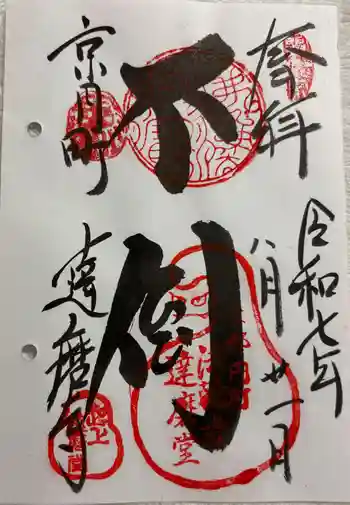 奉拝
令和七年
八月廿一日
不倒
京月町
達磨寺
達磨堂